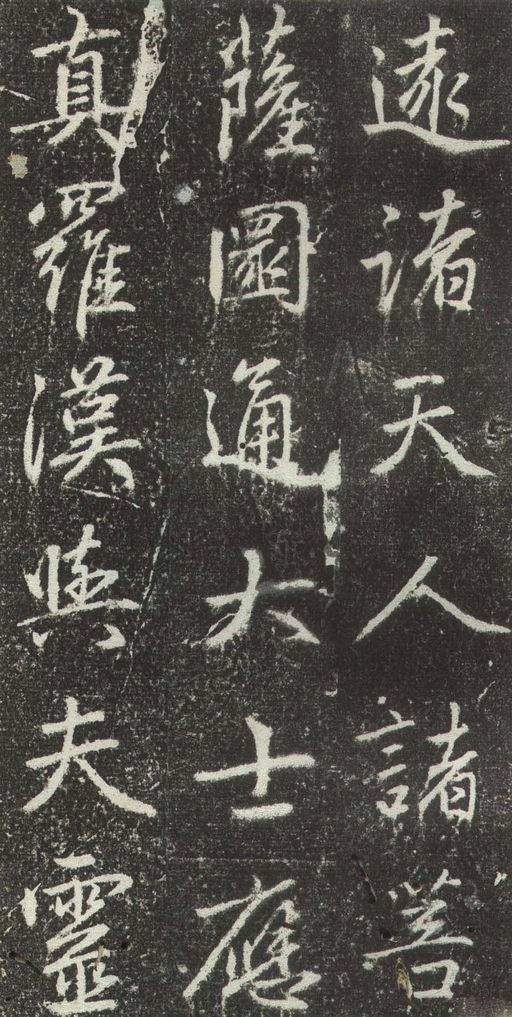 遠諸天人諸菩
薩圓通大士應
真羅漢與夫靈